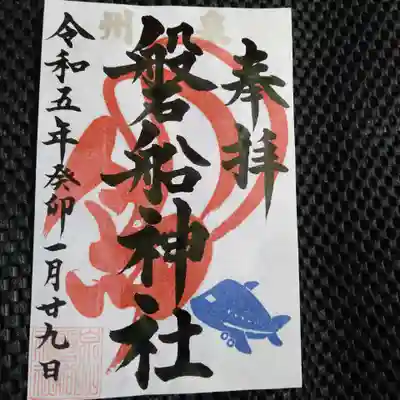 奉拝
磐船神社
令和五年癸卯一月廿九日